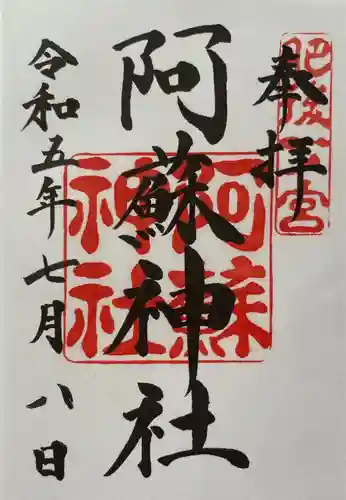 肥後一宮
奉拝
阿蘇神社
阿蘇神社
令和五年七月八日